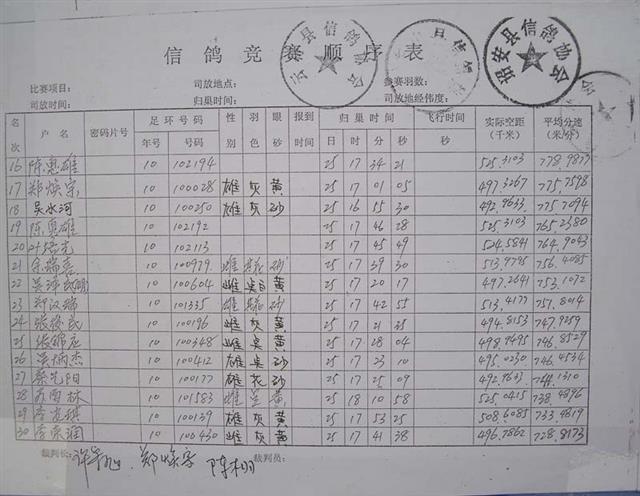 信鸽竞赛顺序表
诏安县信鸽协会
比赛项目: 司放地点: 参赛羽数:
司放时间: 归巢时间: 司放地经纬度:
名次 户名 密码片号 足环号码 性别 羽色 眼砂 报到时间 归巢时间 飞行时间 实际空距(千米) 平均分速(米/分)
年号 号码 日 时 分 秒 秒
16 陈惠雄 10 102194 25 17 34 21 525.3103 778.9817
17 郑焕宗 10 100028 雄 灰 黄 25 17 01 05 497.3267 775.7598
18 吴水河 10 100250 雄 灰 砂 25 16 55 30 492.9633 775.7094
19 陈惠雄 10 102192 25 17 46 28 525.3103 765.2380
20 10 102113 25 17 45 49 524.5841 764.9043
21 10 100979 雌 花 砂 25 17 39 30 513.9795 756.4085
22 10 100604 雌 黄 25 17 20 17 497.2641 753.1072
23 郑汉 10 101335 雄 花 砂 25 17 42 55 513.4177 751.8014
24 张 民 10 100196 雌 灰 黄 25 17 21 25 494.8153 747.9259
25 张 10 100348 雌 黄 25 17 28 04 498.9495 746.8529
26 吴炳杰 10 100412 雄 砂 25 17 23 10 495.0230 746.4534
27 蔡 阳 10 100177 雄 花 砂 25 17 25 09 492.9633
28 林 10 101583 雌 黄 25 18 10 58 525.0415 738.4896
29 李 10 100139 雄 灰 黄 25 17 53 25 508.6085 733.4819
30 李 10 100430 雌 灰 黄 25 17 41 38 496.7862 728.8173
裁判长: 裁判员:
郑焕宗